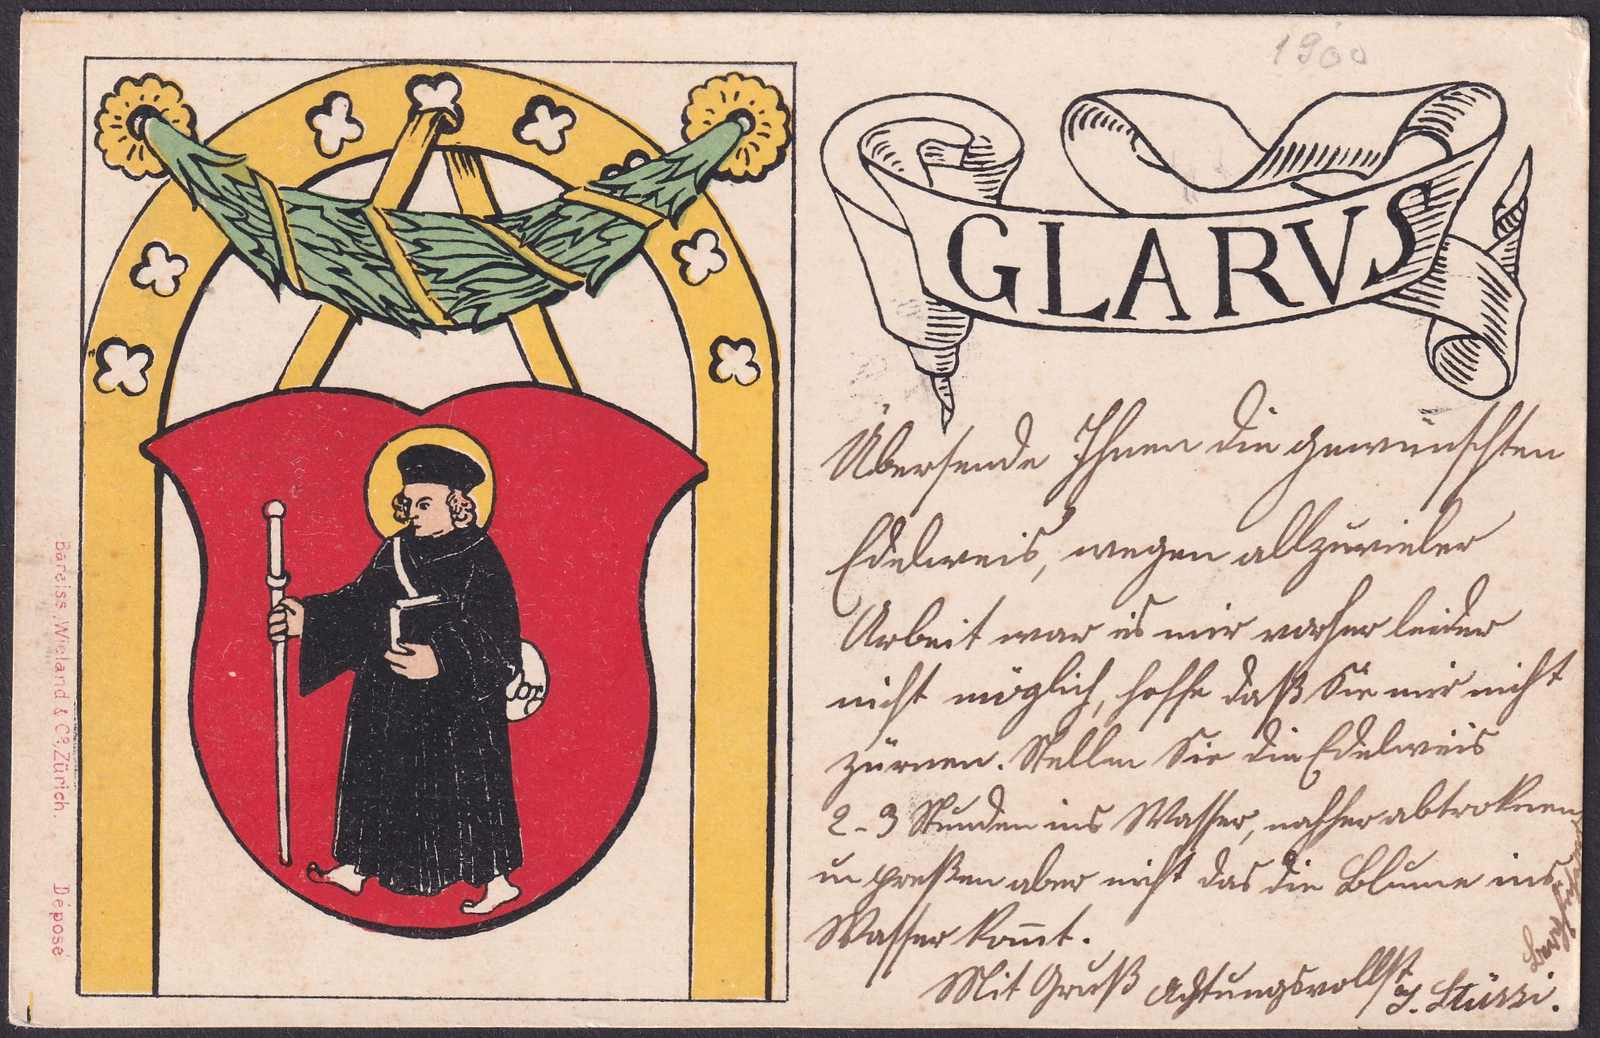 1900
GLARVS
Übersende Ihnen die gewünschten
Edelweis, wegen allzuvieler
Arbeit war es mir vorher leider
nicht möglich, hoffe daß Sie mir nicht
zürnen. Stellen Sie die Edelweis
2-3 Stunden ins Wasser, nachher abtroknen
u preßen aber nicht das die Blume ins
Wasser kom̅t.
Mit Gruß Achtungsvollst
J. Stüssi.
Bäreiss, Wieland & Cº, Zürich. Déposé